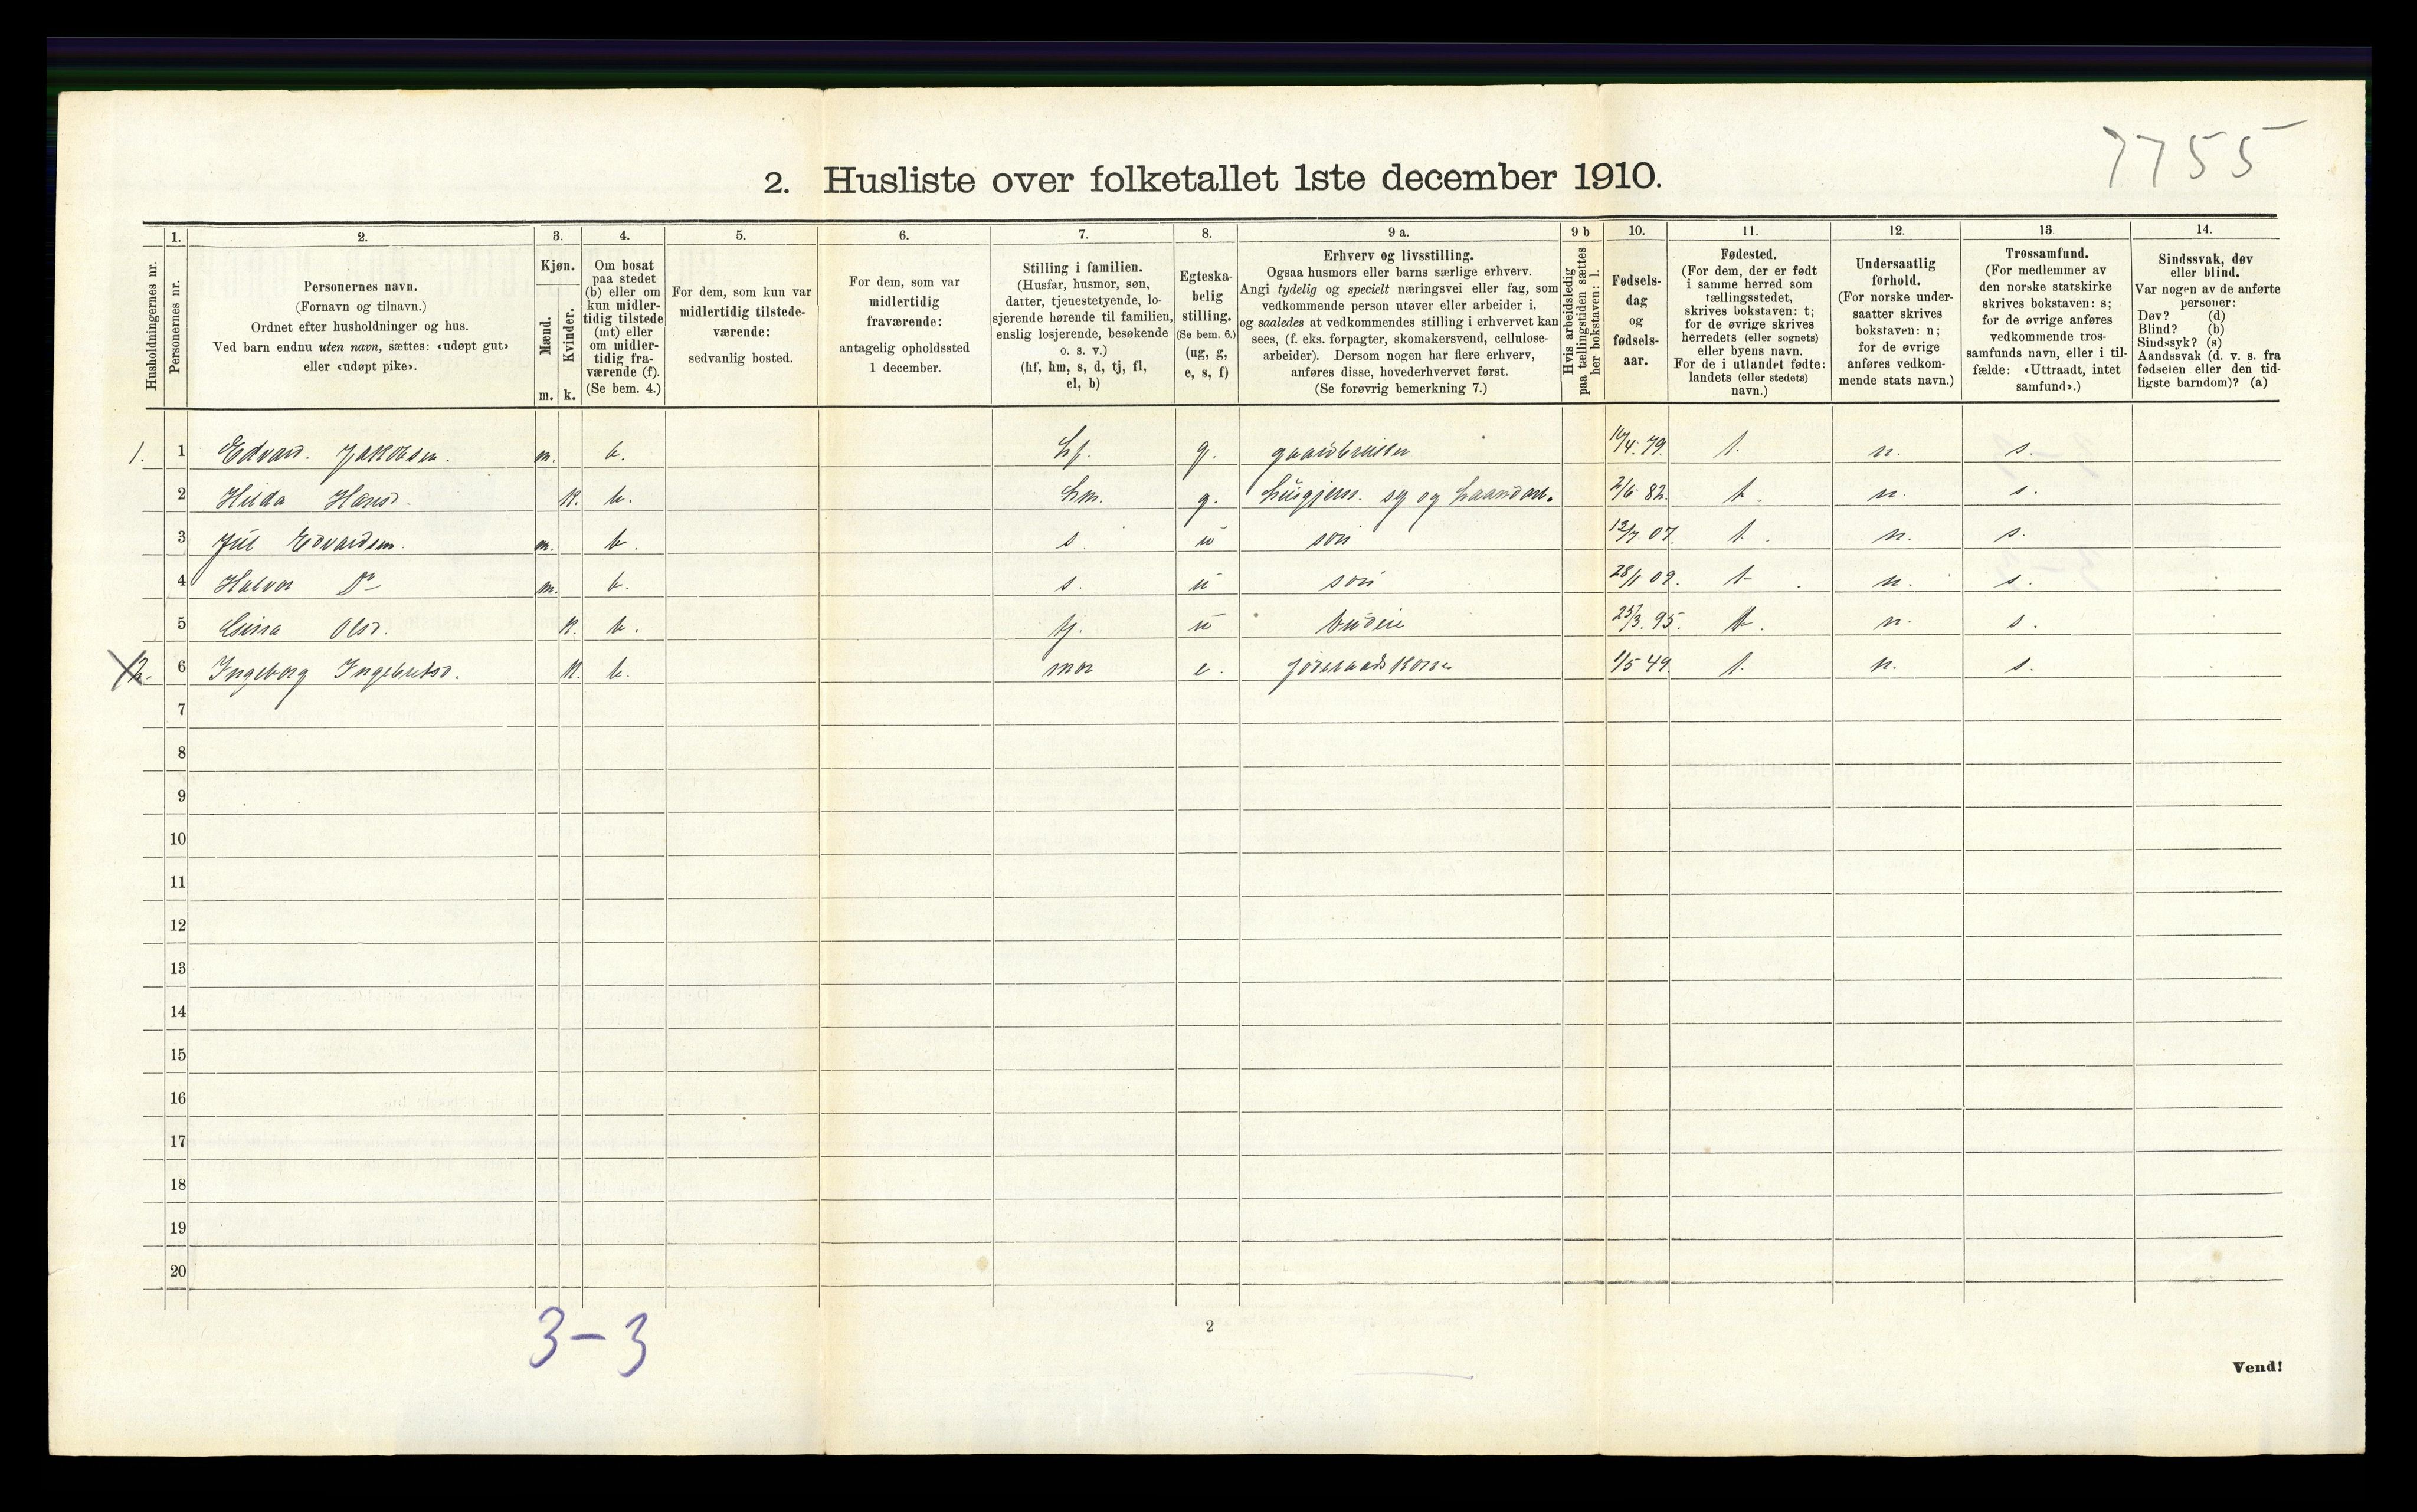 7755
2. Husliste over folketallet 1ste december 1910.
Husholdningernes nr.
1. Personernes nr.
2. Personernes navn.
(Fornavn og tilnavn.)
Ordnet efter husholdninger og hus.
Ved barn endnu uten navn, sættes: «udøpt gut»
eller «udøpt pike».
3. Kjøn.
Mænd. Kvinder.
m. k.
4. Om bosat
paa stedet
(b) eller om
kun midler-
tidig tilstede
(mt) eller
om midler-
tidig fra-
værende (f).
(Se bem. 4.)
5. For dem, som kun var
midlertidig tilstede-
værende:
sedvanlig bosted.
6. For dem, som var
midlertidig
fraværende:
antagelig opholdssted
1 december.
7. Stilling i familien.
(Husfar, husmor, søn,
datter, tjenestetyende, lo-
sjerende hørende til familien,
enslig losjerende, besøkende
o. s. v.)
(hf, hm, s, d, tj, fl,
el, b)
8. Egteska-
belig
stilling.
(Se bem. 6.)
(ug, g,
e, s, f)
9 a. Erhverv og livsstilling.
Ogsaa husmors eller barns særlige erhverv.
Angi tydelig og specielt næringsvei eller fag, som
vedkommende person utøver eller arbeider i,
og saaledes at vedkommendes stilling i erhvervet kan
sees, (f. eks. forpagter, skomakersvend, cellulose-
arbeider). Dersom nogen har flere erhverv,
anføres disse, hovederhvervet først.
(Se forøvrig bemerkning 7.)
9 b Hvis arbeidsledig
paa tællingstiden sættes
her bokstaven: l.
10. Fødsels-
dag
og
fødsels-
aar.
11. Fødested.
(For dem, der er født
i samme herred som
tællingsstedet,
skrives bokstaven: t;
for de øvrige skrives
herredets (eller sognets)
eller byens navn.
For de i utlandet fødte:
landets (eller stedets)
navn.)
12. Undersaatlig
forhold.
(For norske under-
saatter skrives
bokstaven: n;
for de øvrige
anføres vedkom-
mende stats navn.)
13. Trossamfund.
(For medlemmer av
den norske statskirke
skrives bokstaven: s;
for de øvrige anføres
vedkommende tros-
samfunds navn, eller i til-
fælde: «Uttraadt, intet
samfund».)
14. Sindssvak, døv
eller blind.
Var nogen av de anførte
personer:
Døv? (d)
Blind? (b)
Sindssyk? (s)
Aandssvak (d. v. s. fra
fødselen eller den tid-
ligste barndom)? (a)
1. 1 Edvard Jakobsen. m. b. hf. g. gaardbruker 10/4. 79. t. n. s.
2 Hilda Hansd. k. b. hm. g. husgjern. sy og haandarb. 2/6 82. t. n. s.
3 Jul Edvardsen. m. b. s. u søn 07. t. n. s.
4 Halvor Do m. b. s. u søn 28/1 09. t n. s.
5 Olsd. k. b. tj. u budeie 3. 95. t. n. s.
2. 6 Ingeborg Ingebretsd. k. b. mor e. føderaadskone 1/5 49. t. n. s.
7
8
9
10
11
12
13
14
15
16
17
18
19
20
3-3
2
Vend!